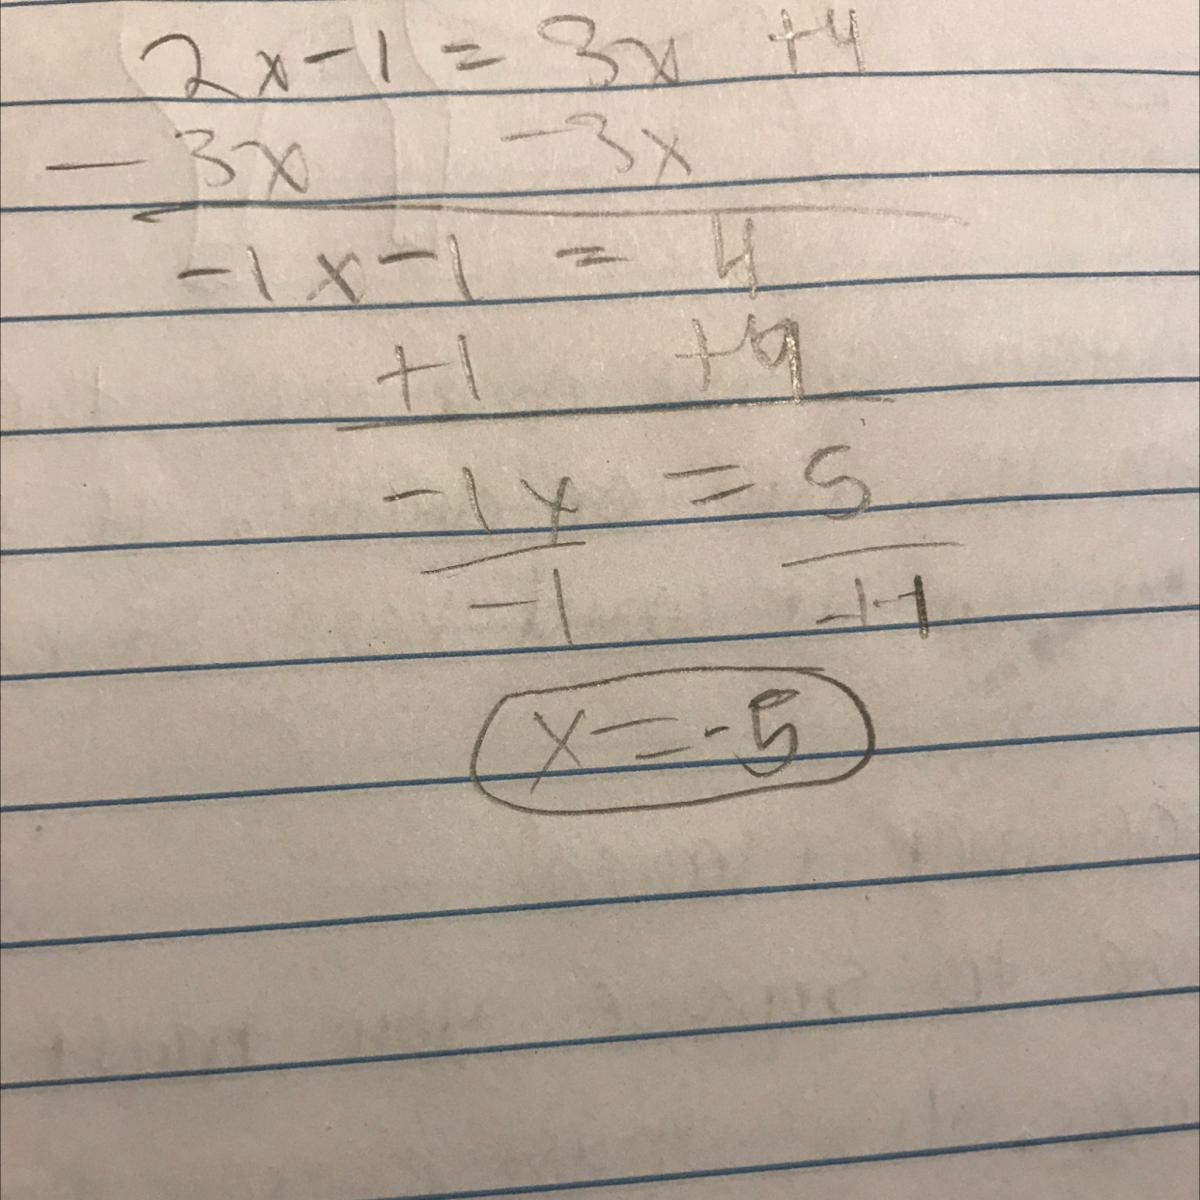 2x-1 = 3x +4
- 3x -3x
-1x-1 = 4
+1 +4
-1x = 5
-1 -1-1
x=-5